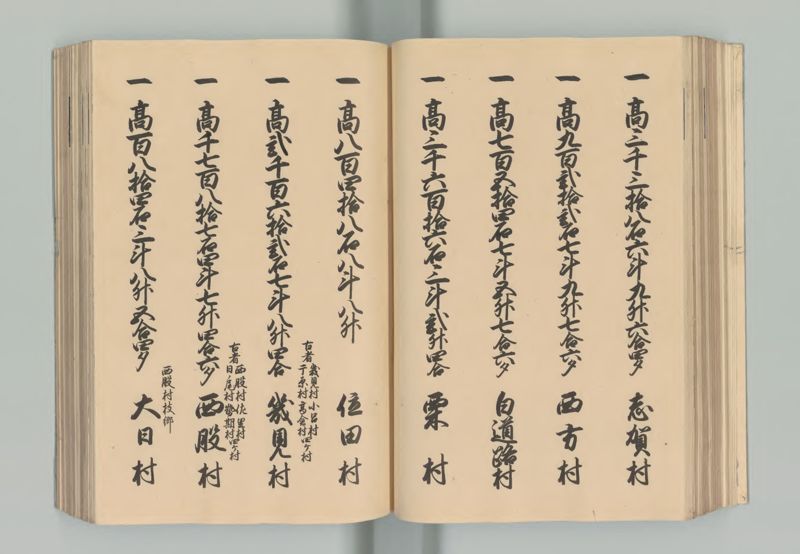 一 高三千三拾八石六斗九升六合四夕 志賀村
一 高九百弐拾弐石七斗九升七合六夕 西方村
一 高七百五拾四石七斗五升七合六夕 白道路村
一 高三千六百拾六石三斗弐升四合 栗村
一 高八百四拾八石八斗八升 位田村
一 高弐千百六拾弐石七斗八升四合 幾見村
古者 幾見村 小呂村
于原村 高倉村 四ケ村
一 高千七百八拾七石四斗七升四合六夕 西股村
古者 西股村 佐里村
日尾村 村四ケ村
一 高百八拾四石三斗八升五合四夕 大日村
西股村枝郷